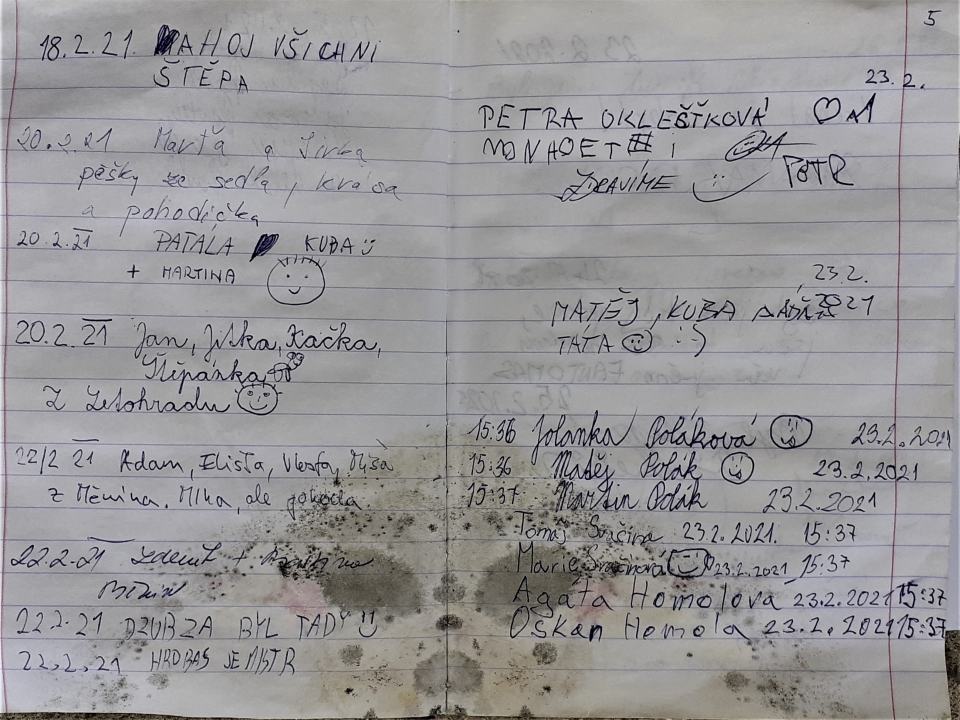 18.2.21. AHOJ VŠICHNI
ŠTĚPA
20.2.21 Marťa a Jirka
pěšky ze sedla, krása
a pohodička
20.2.21 PATALA KUBA
+ MARTINA
20.2.21 Jan, Jitka, Kačka,
Štěpánka
Z Letohradu
22/2 21 Adam, Eliška, Vlasta, Míša
z Měnína. Mlha, ale pohoda.
22.2.21 Zdeněk +
22.2.21 DZUBZA BYL TADY
22.2.21 HROBAS JE MISTR
5
23.2.
PETRA OKLEŠŤKOVÁ
I
ZDRAVÍME PETR
23.2.
MATĚJ, KUBA 2021
TÁTA
15:36 Jolanka Poláková 23.2.2021
15:36 Matěj Polák 23.2.2021
15:37 Martin Polák 23.2.2021
Tomáš Svačina 23.2.2021. 15:37
Marie Svačinová 23.2.2021 15:37
Agáta Homolová 23.2.2021 15:37
Oskan Homola 23.2.2021 15:37